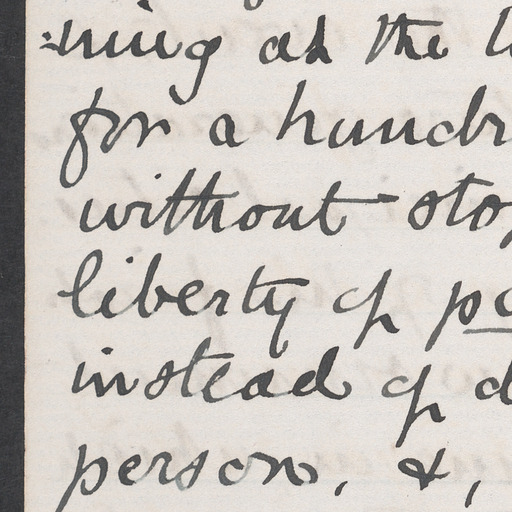 :ning at the
for a hundr
without stop
liberty of
instead of
person, &,